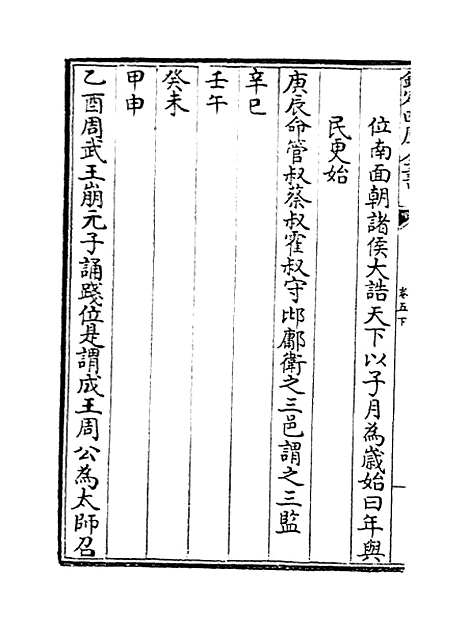 位南面朝諸侯大誥天下以子月為歲始曰年與
民更始
庚辰命管叔蔡叔霍叔守邶鄘衛之三邑謂之三監
辛巳
壬午
癸未
甲申
乙酉周武王崩元子誦踐位是謂成王周公為太師召
卷五下